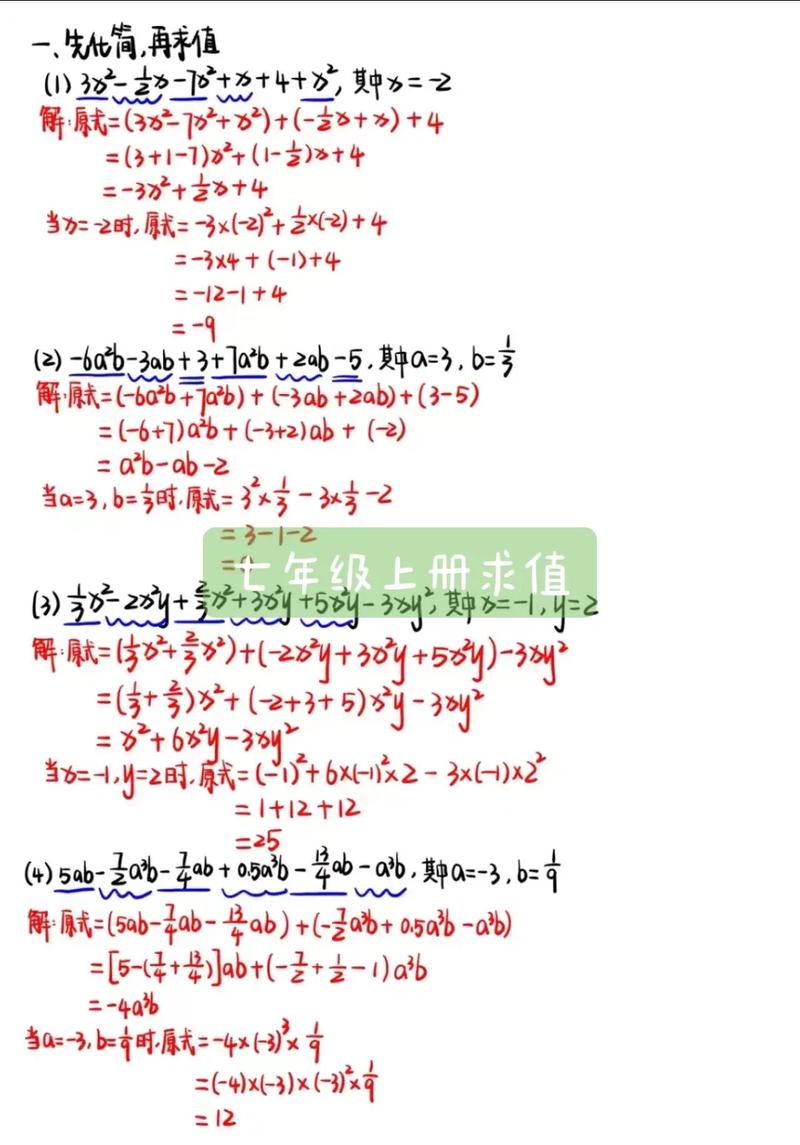 一、先化简,再求值
(1) 3x²-½x-7x²+x+4+x², 其中x=-2
解:原式=(3x²-7x²+x²)+(-½x+x)+4
=(3+1-7)x²+(1-½)x+4
=-3x²+½x+4
当x=-2时,原式=-3×(-2)²+½×(-2)+4
=-3×4+(-1)+4
=-12-1+4
=-9
(2) -6a²b-3ab+3+7a²b+2ab-5,其中a=3,b=⅓
解:原式=(-6a²b+7a²b)+(-3ab+2ab)+(3-5)
=(-6+7)a²b+(-3+2)ab+(-2)
=a²b-ab-2
当a=3,b=⅓时,原式=3²×⅓-3×⅓-2
=3-1-2
七年级上册求值
(3) ⅓x²-2x²y+⅔x²+3x²y+5x²y-3xy²,其中x=-1,y=2
解:原式=(⅓x²+⅔x²)+(-2x²y+3x²y+5x²y)-3xy²
=(⅓+⅔)x²+(-2+3+5)x²y-3xy²
=x²+6x²y-3xy²
当x=-1,y=2时,原式=(-1)²+6×(-1)²×2-3×(-1)×2²
=1+12+12
=25
(4) 5ab-7/2a³b-7/4ab+0.5a³b-13/4ab-a³b,其中a=-3,b=1/9
解:原式=(5ab-7/4ab-13/4ab)+(-7/2a³b+0.5a³b-a³b)
=[5-(7/4+13/4)]ab+(-7/2+1/2-1)a³b
=-4a³b
当a=-3,b=1/9时,原式=-4×(-3)³×1/9
=(-4)×(-3)×(-3)²×1/9
=12